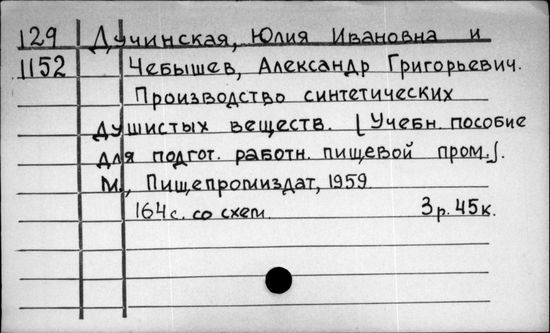 129 Дучинская, Юлия Ивановна и
1152 Чебышев, Александр Григорьевич.
Производство синтетических
душистых веществ. [Учебн. пособие
для подгот. работн. пищевой пром.].
М., Пищепромиздат, 1959.
164 с. со схем. 3 р. 45 к.